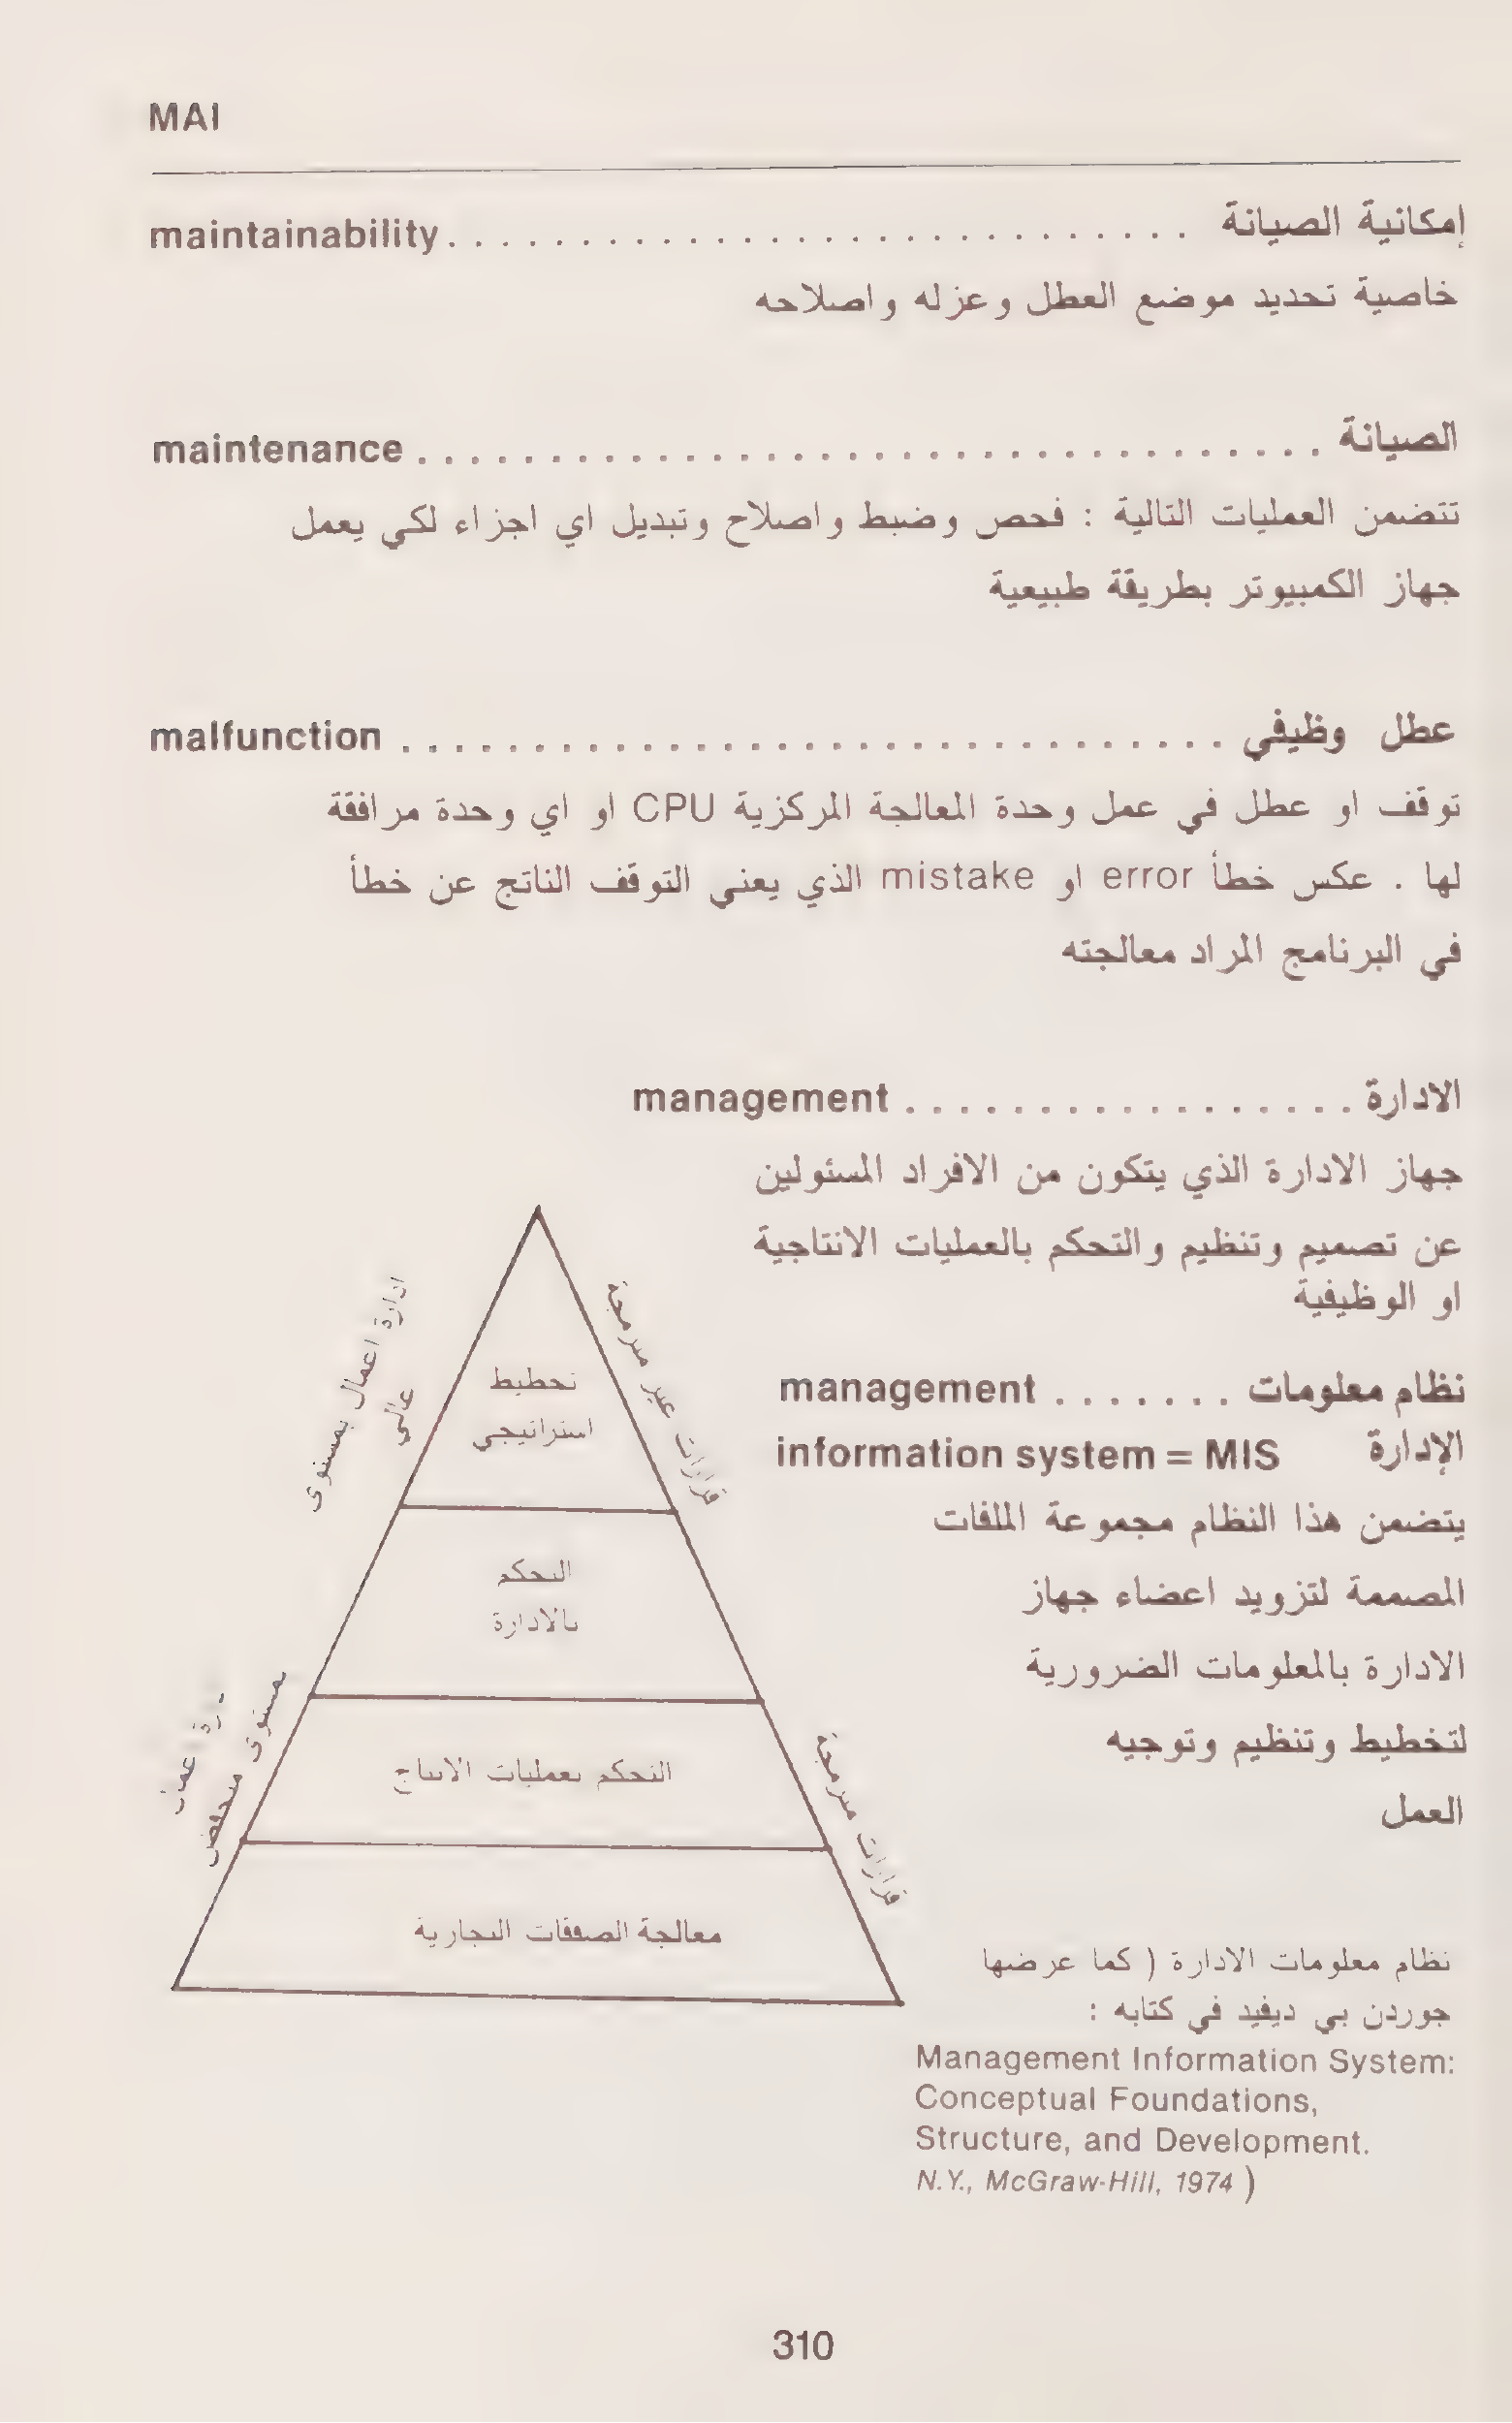 MAI
maintainability. . . . . . . . . . . . . . . . . . . . . . . . . . . . إمكانية الصيانة
خاصية تحديد موضع العطل وعزله واصلاحه
maintenance . . . . . . . . . . . . . . . . . . . . . . . . . . . . . . . . . . الصيانة
تتضمن العمليات التالية : فحص وضبط واصلاح وتبديل اي اجزاء لكي يعمل
جهاز الكمبيوتر بطريقة طبيعية
malfunction . . . . . . . . . . . . . . . . . . . . . . . . . . . . . . . عطل وظيفي
توقف او عطل في عمل وحدة المعالجة المركزية CPU او اي وحدة مرافقة
لها . عكس خطأ error او mistake الذي يعني التوقف الناتج عن خطأ
في البرنامج المراد معالجته
management . . . . . . . . . . . . . . . . . الادارة
جهاز الادارة الذي يتكون من الافراد المسئولين
عن تصميم وتنظيم والتحكم بالعمليات الانتاجية
او الوظيفية
management . . . . . . . نظام معلومات
information system = MIS الإدارة
يتضمن هذا النظام مجموعة الملفات
المصممة لتزويد اعضاء جهاز
الادارة بالمعلومات الضرورية
لتخطيط وتنظيم وتوجيه
العمل
ادارة اعمال بمستوى
عالي
تخطيط
استراتيجي
قرارات غير مبرمجة
التحكم
بالادارة
بمستوى منخفض
التحكم بعمليات الانتاج
قرارات مبرمجة
معالجة الصفقات التجارية
نظام معلومات الادارة ( كما عرضها
جوردن بي ديفيد في كتابه :
Management Information System:
Conceptual Foundations,
Structure, and Development.
N.Y., McGraw-Hill, 1974 )
310